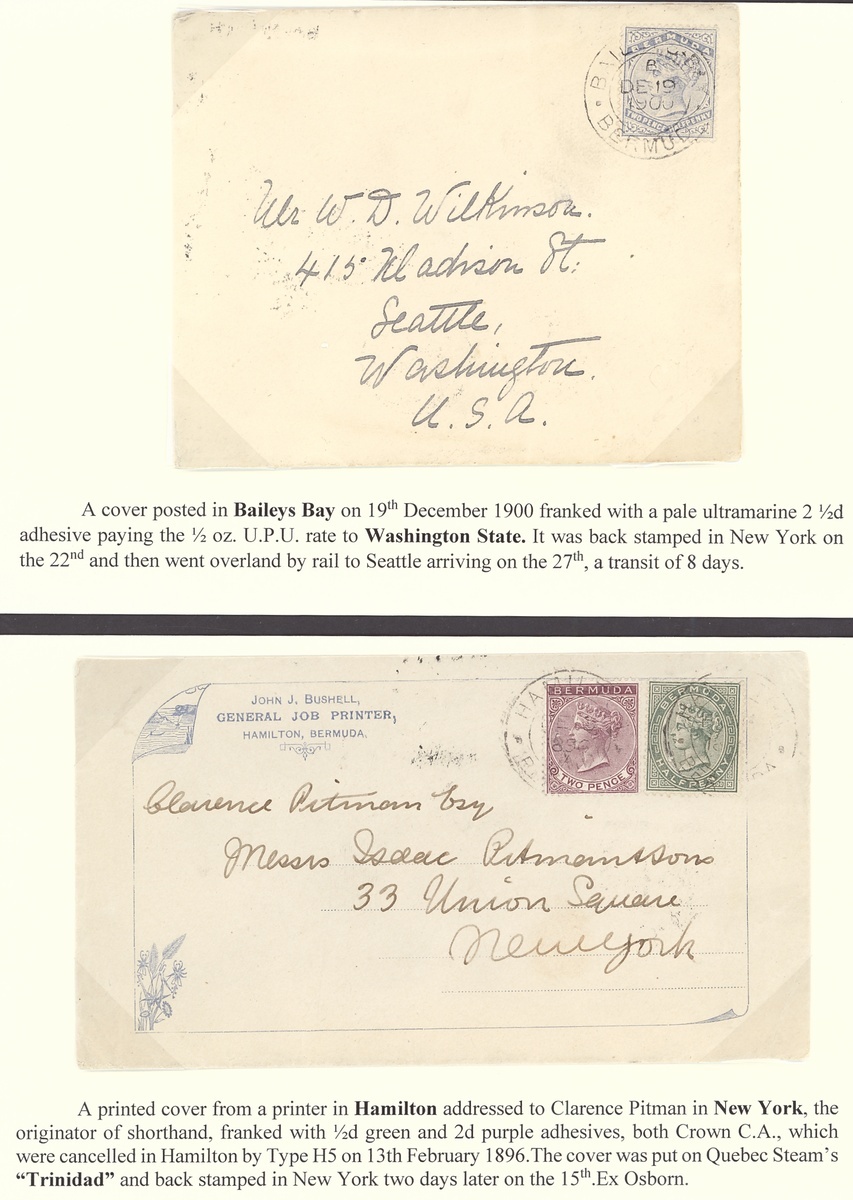 BERMUDA
TWO PENCE HALFPENNY
DE 19
1900
BERMUD
Mr W. D. Wilkinson.
415 Madison St.
Seattle,
Washington.
U. S. A.
A cover posted in Baileys Bay on 19th December 1900 franked with a pale ultramarine 2 ½d
adhesive paying the ½ oz. U.P.U. rate to Washington State. It was back stamped in New York on
the 22nd and then went overland by rail to Seattle arriving on the 27th, a transit of 8 days.
JOHN J. BUSHELL,
GENERAL JOB PRINTER,
HAMILTON, BERMUDA.
HAMIL
BERMUDA
TWO PENCE
BERMUDA
HALFPENNY
Clarence Pitman Esq
Messrs Isaac Pitman & Sons
33 Union Square
New York
A printed cover from a printer in Hamilton addressed to Clarence Pitman in New York, the
originator of shorthand, franked with ½d green and 2d purple adhesives, both Crown C.A., which
were cancelled in Hamilton by Type H5 on 13th February 1896.The cover was put on Quebec Steam's
“Trinidad” and back stamped in New York two days later on the 15th.Ex Osborn.